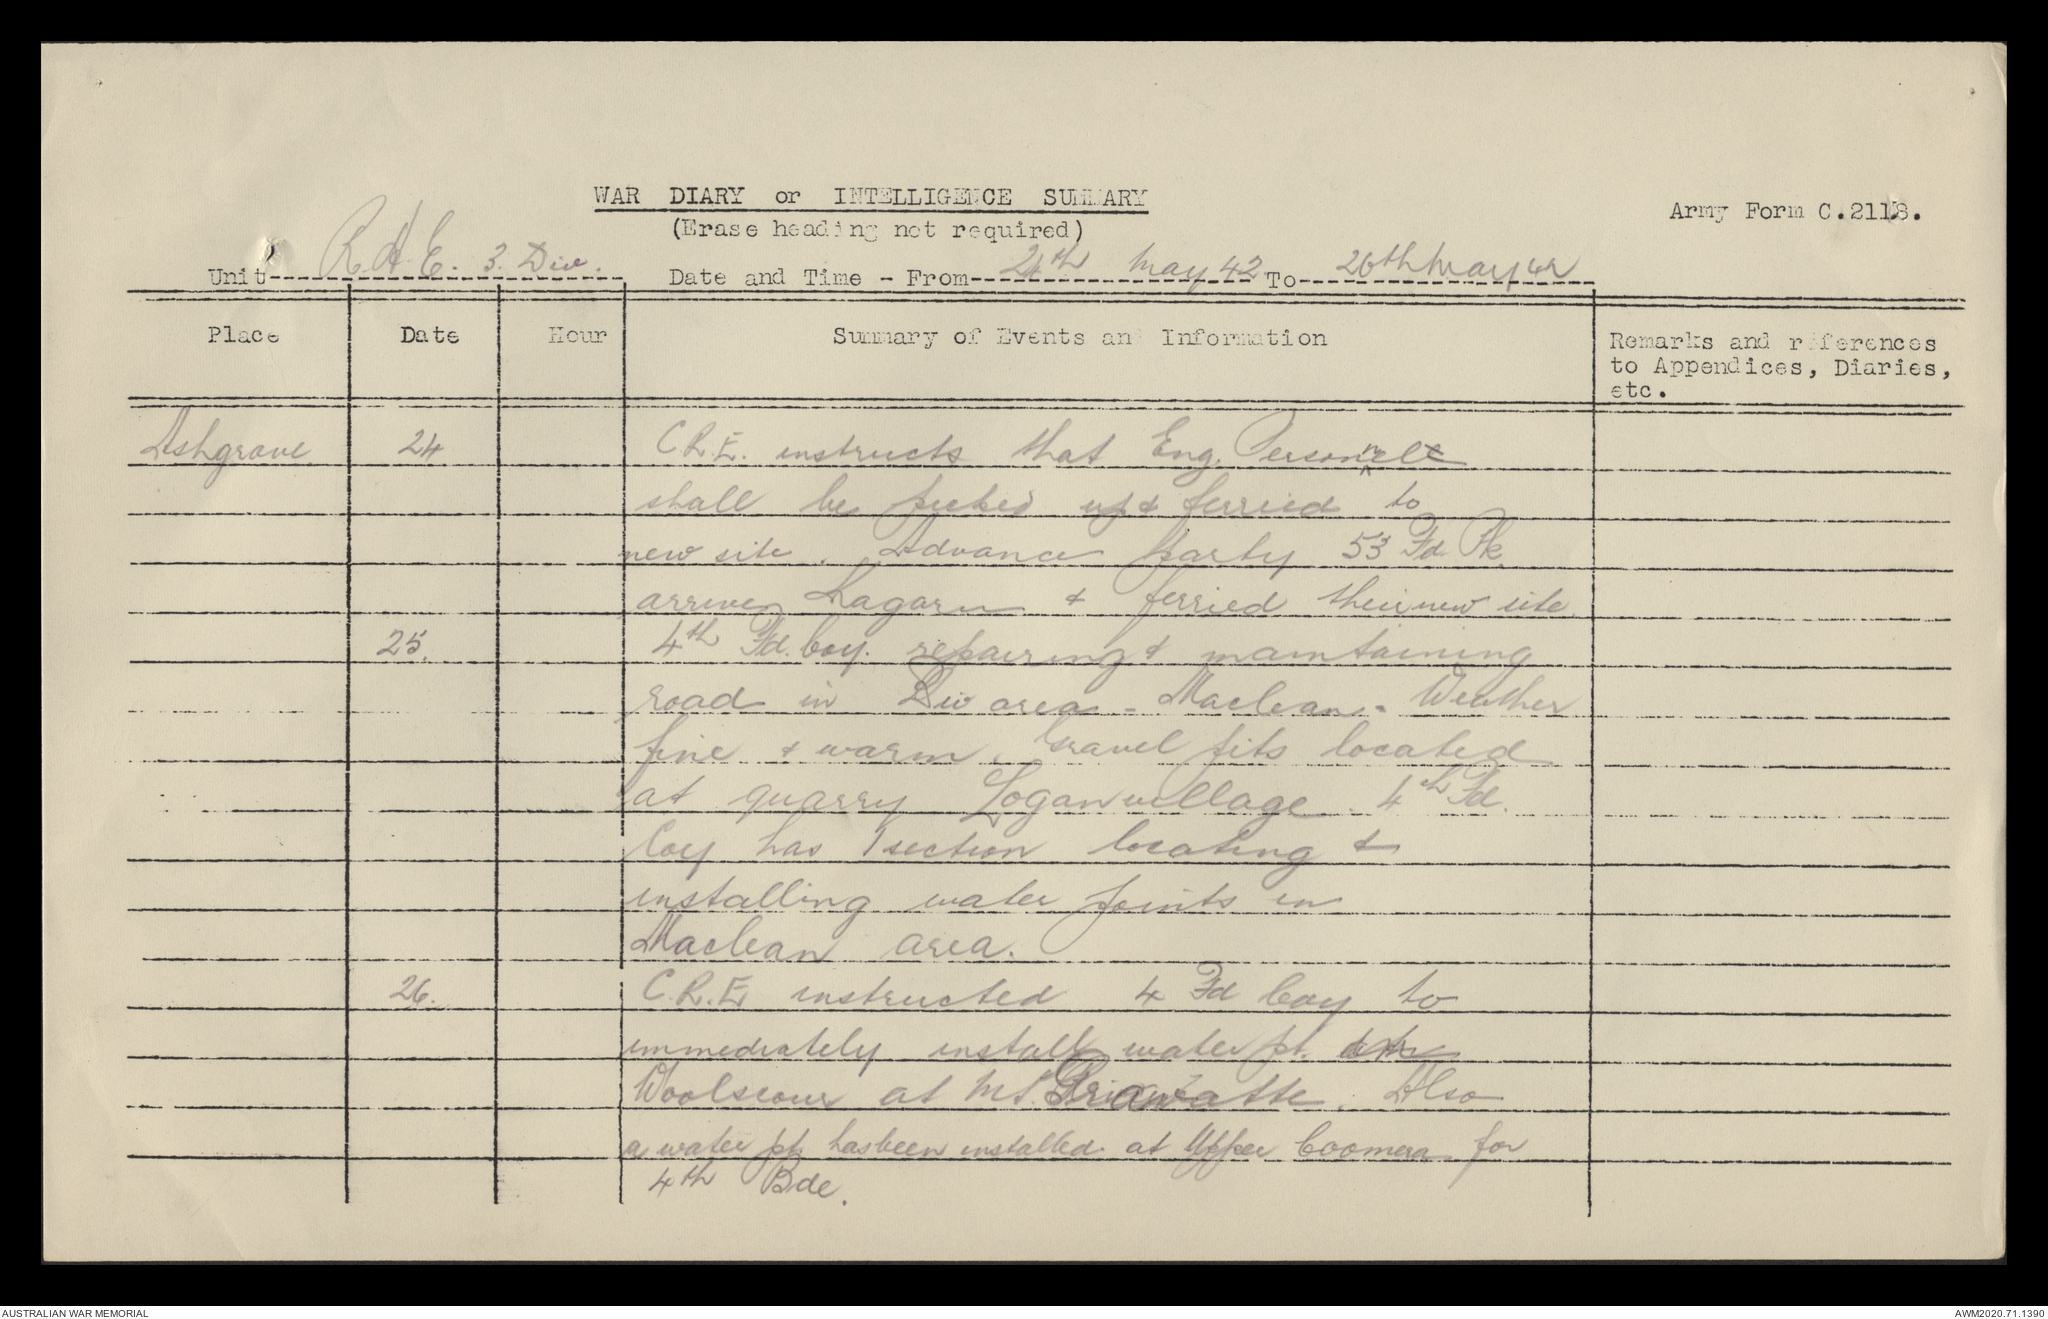 WAR DIARY or INTELLIGENCE SUMMARY
(Erase heading not required)
Army Form C.2118.
Unit R.A.E. 3. Div. Date and Time - From 24th May 42 To 26th May 42
Place Date Hour Summary of Events and Information Remarks and references
to Appendices, Diaries,
etc.
Ashgrove 24 C.R.E. instructs that Eng. Personnel
shall be picked up & ferried to
new site. Advance party 53 Fd. Pk.
arrives & ferried their new site.
25. 4th Fd. Coy. repairing & maintaining
road in Div area - Maclean - Weather
fine & warm. Gravel pits located
at quarry Logan village. 4th Fd.
Coy has 1 section locating &
installing water points in
Maclean area.
26. C.R.E. instructed 4 Fd Coy to
immediately install water pt.
Woolscour at Mt. Also
a water pt. has been installed at Upper Coomera for
4th Bde.
AUSTRALIAN WAR MEMORIAL
AWM2020.71.1390